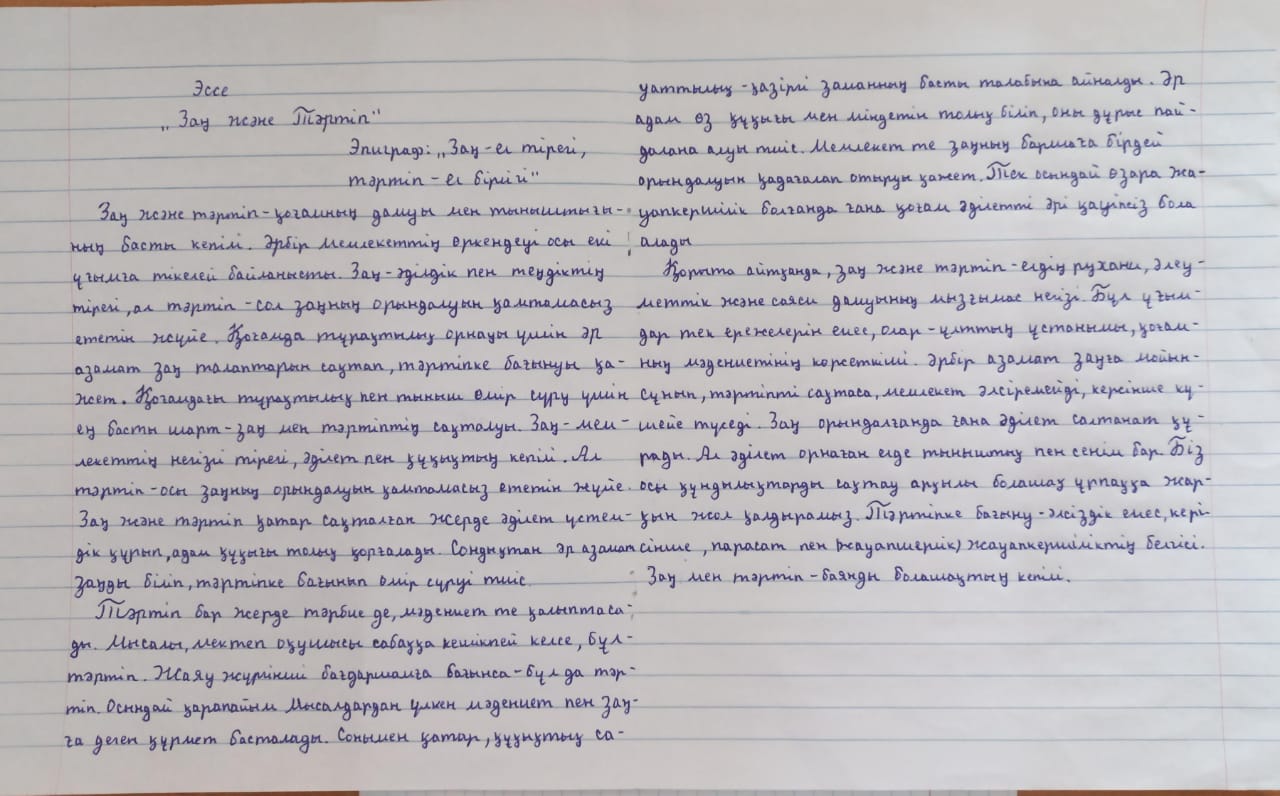 Эссе
„Заң және Тәртіп"
Эпиграф: „Заң - ел тірегі,
тәртіп - ел бірлігі"
Заң және тәртіп - қоғамның дамуы мен тыныштығы-
ның басты кепілі. Әрбір мемлекеттің өркендеуі осы екі
ұғымға тікелей байланысты. Заң - әділдік пен теңдіктің
тірегі, ал тәртіп - сол заңның орындалуын қамтамасыз
ететін жүйе. Қоғамда тұрақтылық орнауы үшін әр
азамат заң талаптарын сақтап, тәртіпке бағынуы қа-
жет. Қоғамдағы тұрақтылық пен тыныш өмір сүру үшін
ең басты шарт - заң мен тәртіптің сақталуы. Заң - мем-
лекеттің негізгі тірегі, әділет пен құқықтың кепілі. Ал
тәртіп - осы заңның орындалуын қамтамасыз ететін жүйе.
Заң және тәртіп қатар сақталған жерде әділет үстем-
дік құрып, адам құқығы толық қорғалады. Сондықтан әр азамат
заңды біліп, тәртіпке бағынып өмір сүруі тиіс.
Тәртіп бар жерде тәрбие де, мәдениет те қалыптаса-
ды. Мысалы, мектеп оқушысы сабаққа кешікпей келсе, бұл -
тәртіп. Жаяу жүрінші бағдаршамға бағынса - бұл да тәр-
тіп. Осындай қарапайым мысалдардан үлкен мәдениет пен заң-
ға деген құрмет басталады. Сонымен қатар, құқықтық са-
уаттылық - қазіргі заманның басты талабына айналды. Әр
адам өз құқығы мен міндетін толық біліп, оны дұрыс пай-
далана алуы тиіс. Мемлекет те заңның баршаға бірдей
орындалуын қадағалап отыруы қажет. Тек осындай өзара жа-
уапкершілік болғанда ғана қоғам әділетті әрі қауіпсіз бола
алады
Қорыта айтқанда, заң және тәртіп - елдің рухани, әлеу-
меттік және саяси дамуының мызғымас негізі. Бұл ұғым-
дар тек ережелерін емес, олар - ұлттың ұстанымы, қоғам-
ның мәдениетінің көрсеткіші. Әрбір азамат заңға мойын-
сұнып, тәртіпті сақтаса, мемлекет әлсіремейді, керсінше кү-
шейе түседі. Заң орындалғанда ғана әділет салтанат құ-
рады. Ал әділет орнаған елде тыныштық пен сенім бар. Біз
осы құндылықтарды сақтау арқылы болашақ ұрпаққа жар-
қын жол қалдырамыз. Тәртіпке бағыну - әлсіздік емес, кері-
сінше, парасат пен (жауапшерлік) жауапкершіліктің белгісі.
Заң мен тәртіп - баянды болашақтың кепілі.